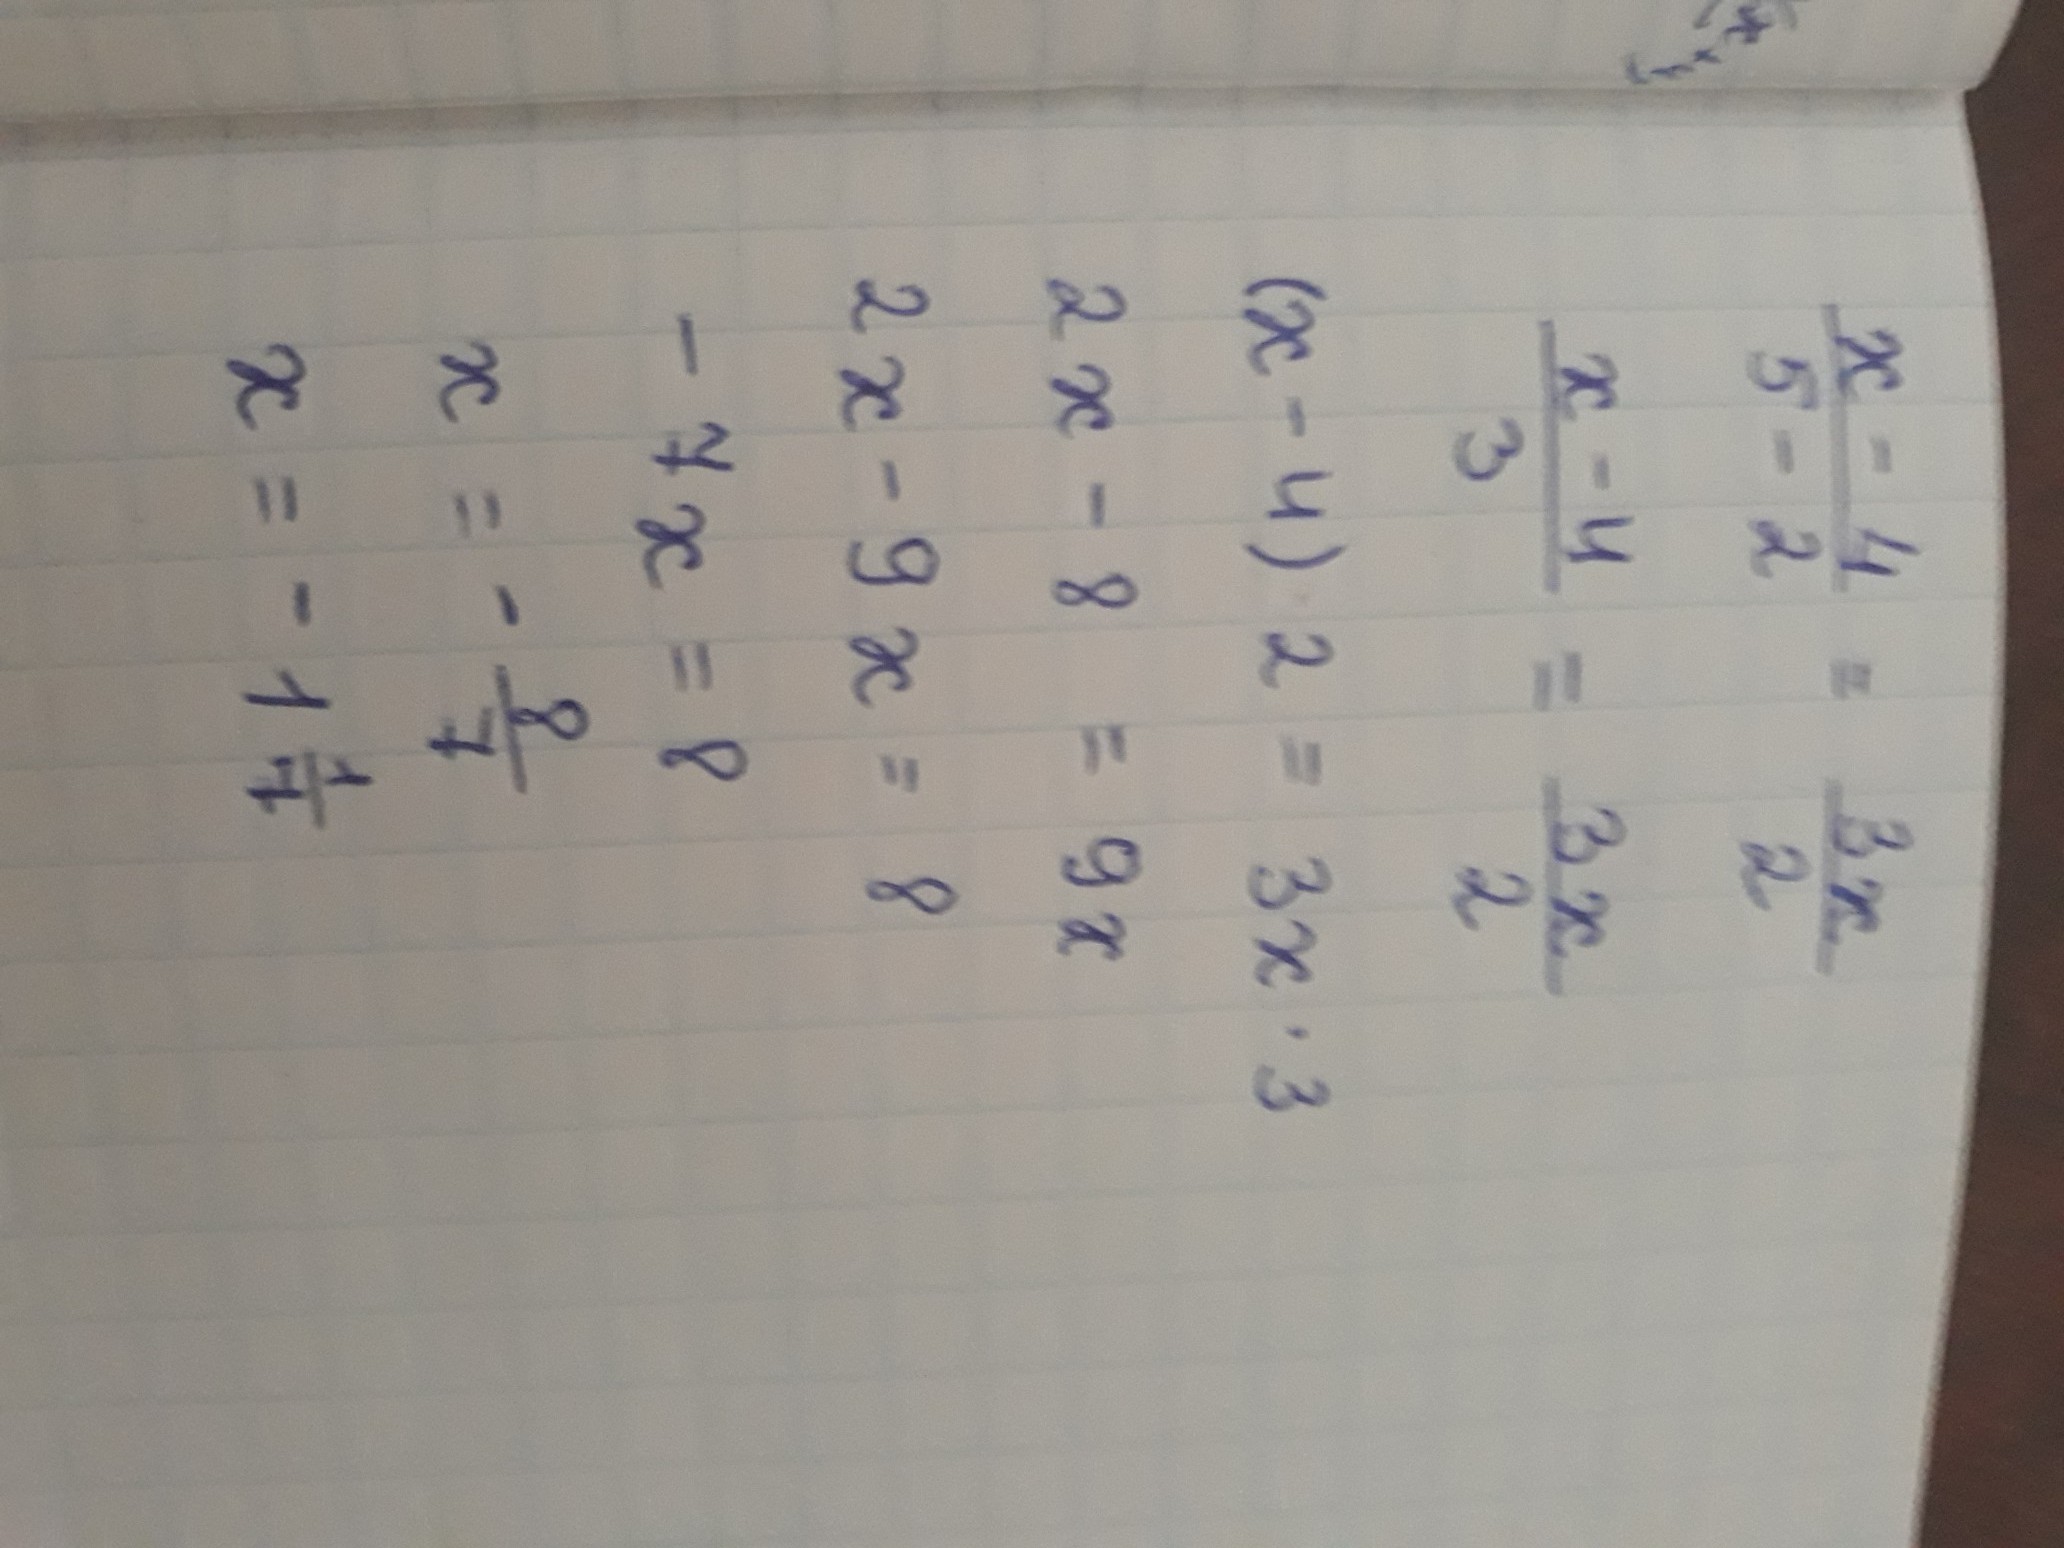 x - 4 / 5 - 2 = 3x / 2
x - 4 / 3 = 3x / 2
(x - 4) 2 = 3x · 3
2x - 8 = 9x
2x - 9x = 8
- 7x = 8
x = - 8/7
x = - 1 1/7